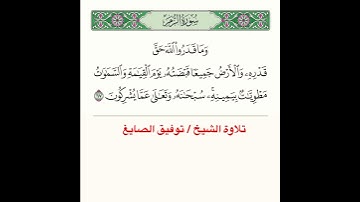 سورة الزمر
وَمَا قَدَرُوا۟ ٱللَّهَ حَقَّ
قَدْرِهِۦ وَٱلْأَرْضُ جَمِيعًا قَبْضَتُهُۥ يَوْمَ ٱلْقِيَٰمَةِ وَٱلسَّمَٰوَٰتُ
مَطْوِيَّٰتٌۢ بِيَمِينِهِۦ ۚ سُبْحَٰنَهُۥ وَتَعَٰلَىٰ عَمَّا يُشْرِكُونَ ٦٧
تلاوة الشيخ / توفيق الصايغ